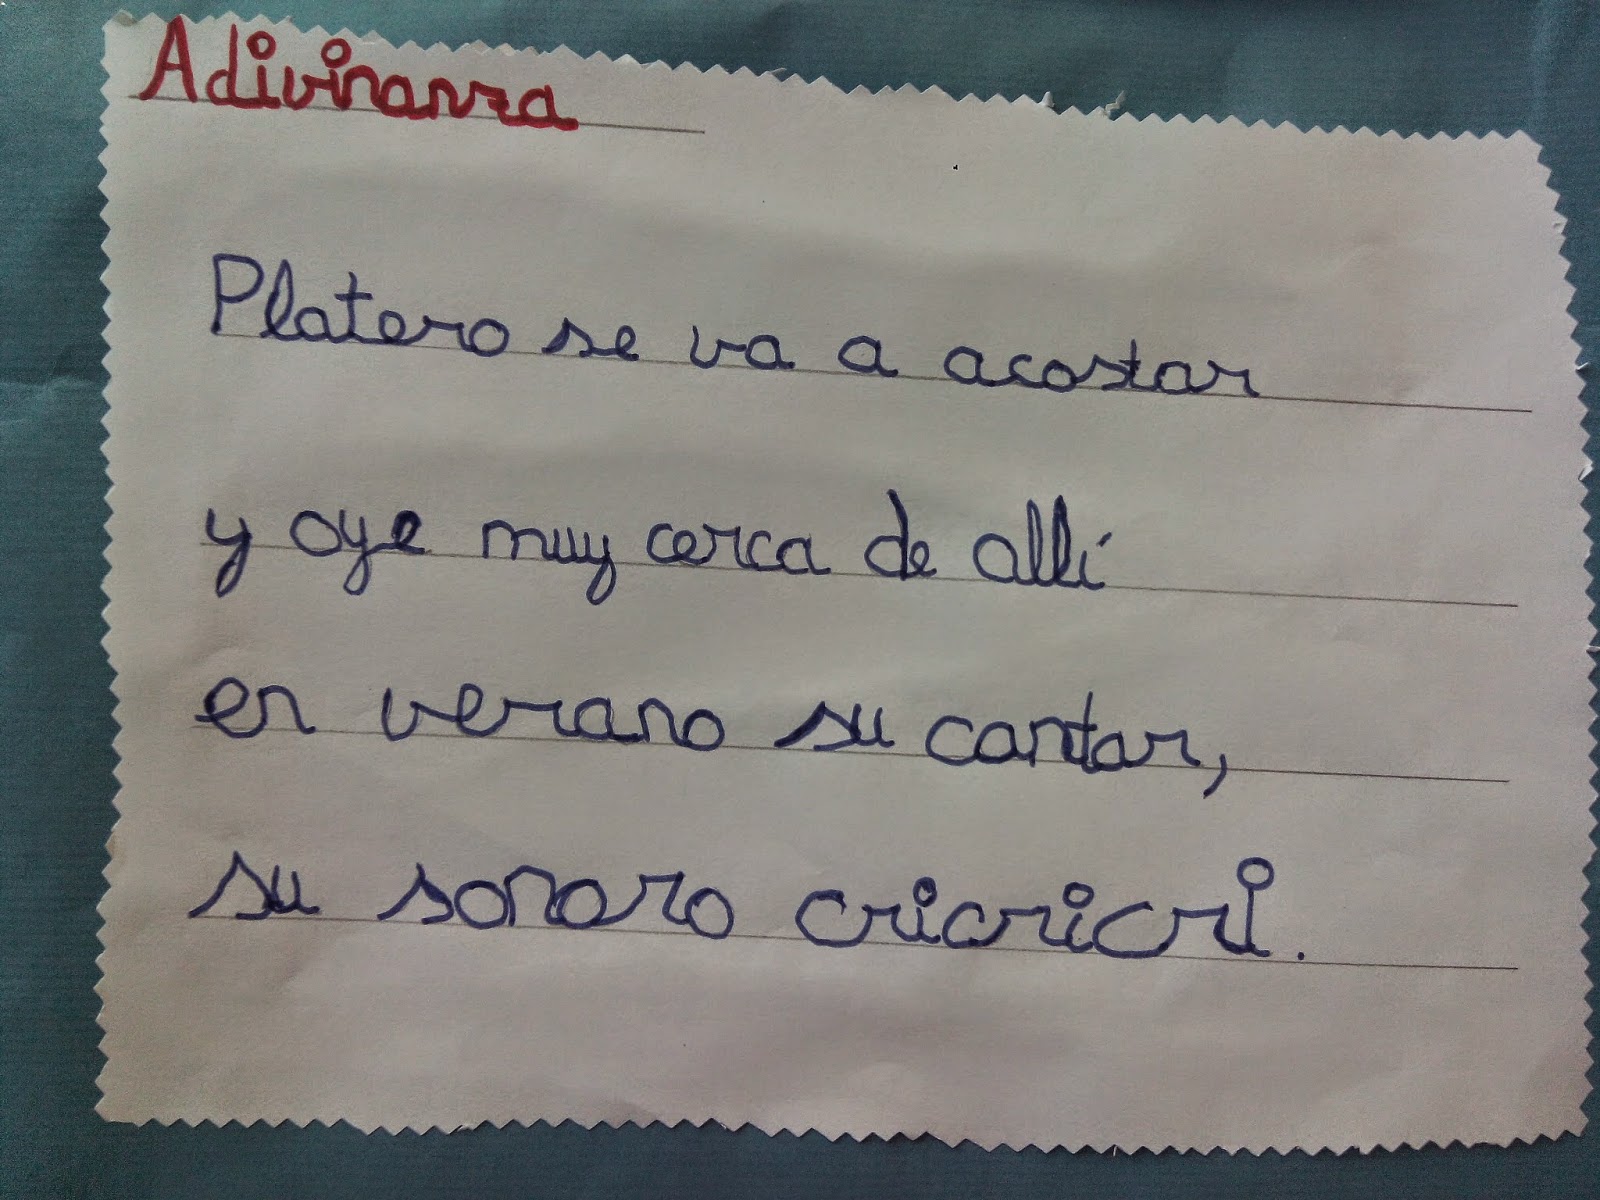 Adivinanza
Platero se va a acostar
y oye muy cerca de allí
en verano su cantar,
su sonoro cricricri.